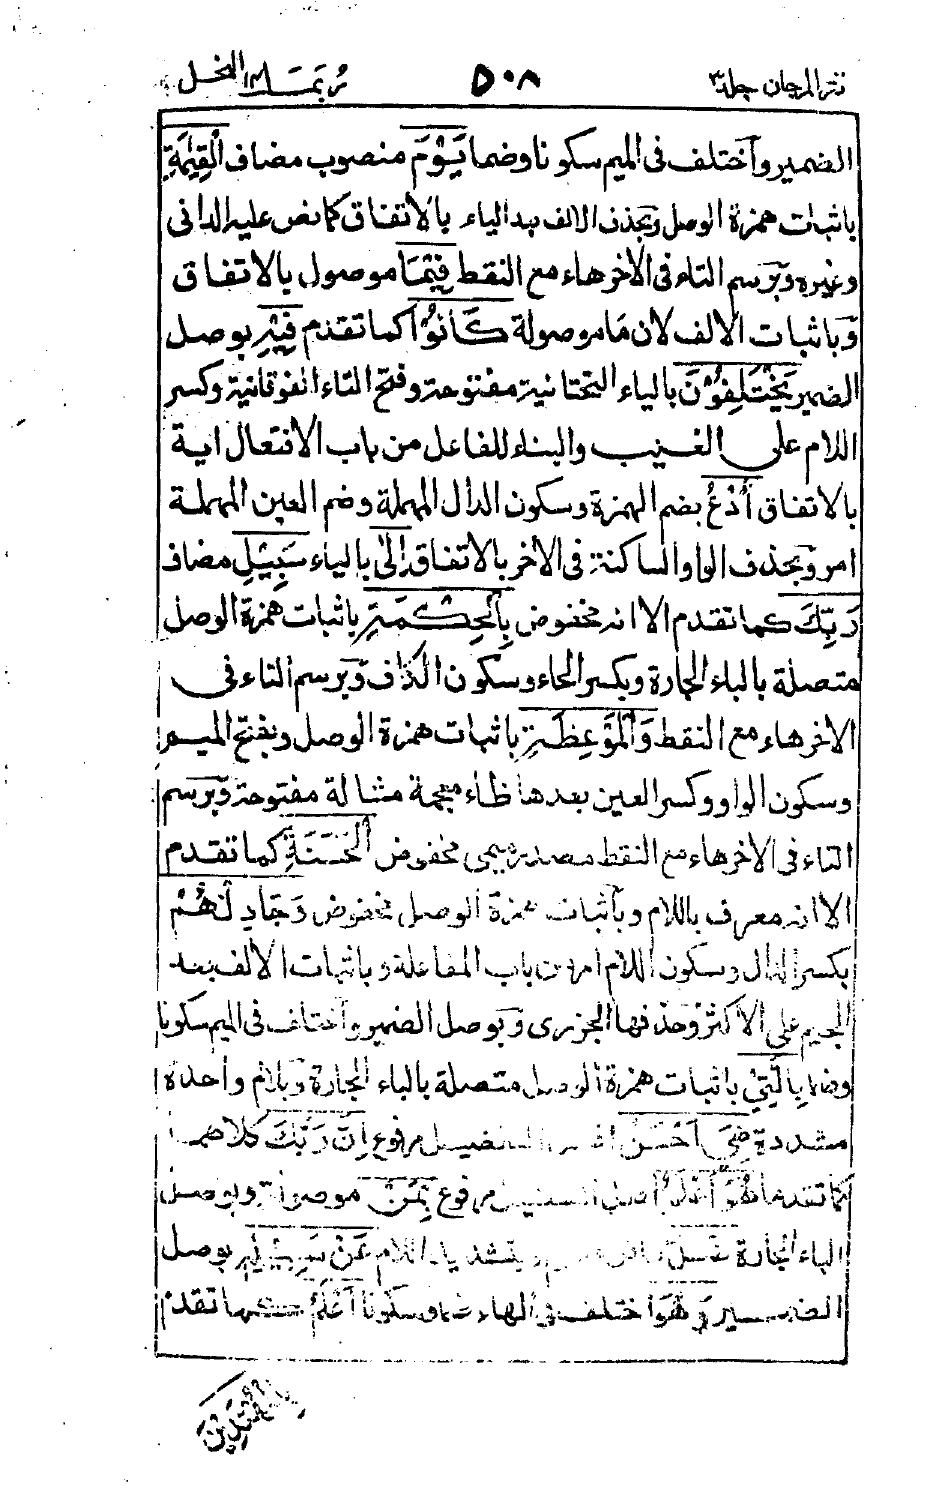 نثر المرجان جلد ٣ ٥٠٨ ربما ١٤ النحل
الضمير وآختلف فى الميم سكونا وضما يَوْمَ منصوب مضاف الْقِيٰمَةِ
باثبات همزة الوصل وبحذف الالف بعد الياء بالاتفاق كما نص عليه الدانى
وغيره وبَرسم التاء فى الاخر هاء مع النقط فِيْمَا موصول بالاتفاق
وَباثبات الالف لان مَا موصولة كَانُوْا كما تقدم فِيْهِ بوصل
الضمير يَخْتَلِفُوْنَ بالياء التحتانية مفتوحة وفتح التاء الفوقانية وكسر
اللام على الغيب والبناء للفاعل من باب الافتعال اية
بالاتفاق اُدْعُ بضم الهمزة وسكون الدال المهملة وضم العين المهملة
امر وبحذف الواو الساكنة فى الاخر بالاتفاق اِلٰى بالياء سَبِيْلِ مضاف
رَبِّكَ كما تقدم الا انه مخفوض بِالْحِكْمَةِ باثبات همزة الوصل
متصلة بالباء الجارة وبكسر الحاء وسكون الكاف وَبرسم التاء فى
الاخر هاء مع النقط وَالْمَوْعِظَةِ باثبات همزة الوصل وبفتح الميم
وسكون الواو وكسر العين بعدها ظاء معجمة مشالة مفتوحة وَبرسم
التاء فى الاخر هاء مع النقط مصدر ميمى مخفوض الْحَسَنَةِ كما تقدم
الا انه معرف باللام وبآثبات همزة الوصل مخفوض وَجَادِلْهُمْ
بكسر الدال وسكون اللام امر من باب المفاعلة وباثبات الالف بعد
الجيم على الاكثر وحذفها الجزرى وَبوصل الضمير وآختلف فى الميم سكونا
وضما بِالَّتِيْ باثبات همزة الوصل متصلة بالباء الجارة وَبلام واحدة
مشددة هِيَ اَحْسَنُ افعل التفضيل مرفوع اِنَّ رَبَّكَ كلاهما
كما تقدما هُوَ اَعْلَمُ افعل التفضيل مرفوع بِمَنْ موصولة وبوصل
الباء الجارة ضَلَّ ماض وبتشديد اللام عَنْ سَبِيْلِهٖ بوصل
الضمير وَهُوَ اختلف فى الهاء ضما وسكونا اَعْلَمُ كما تقدم
بِالْمُهْتَدِيْنَ